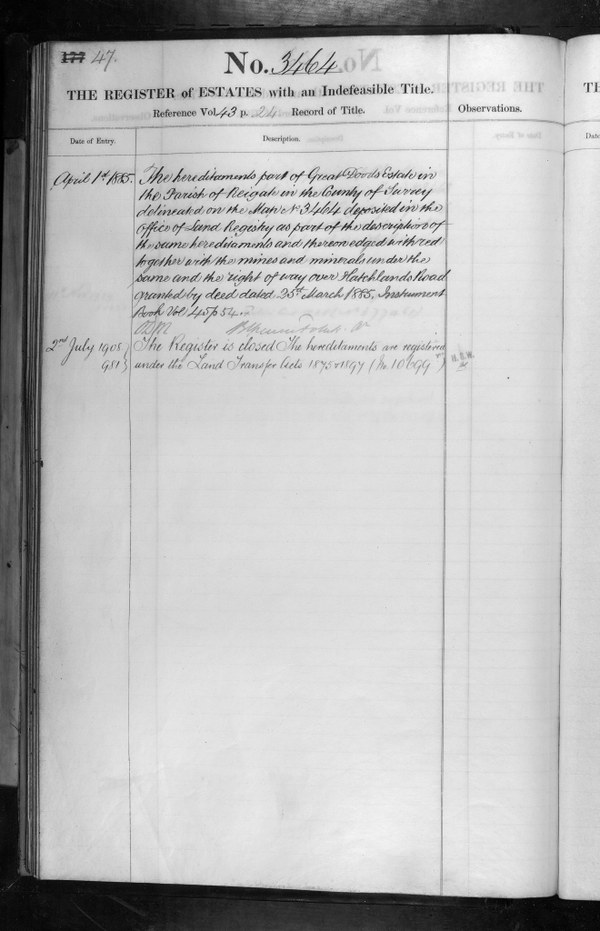 177 47.
No. 3464.
THE REGISTER of ESTATES with an Indefeasible Title.
Reference Vol. 43 p. 24 Record of Title.
Observations.
Date of Entry.
Description.
April 1st 1885.
The hereditaments part of Great Doods Estate in
the Parish of Reigate in the County of Surrey
delineated on the Map No 3464 deposited in the
Office of Land Registry as part of the description of
the same hereditaments and thereon edged with red
together with the mines and minerals under the
same and the right of way over Hatchlands Road
granted by deed dated 25th March 1885. Instrument
Book Vol 45 p 54.
2nd July 1908
981
The Register is closed The hereditaments are registered
under the Land Transfer Acts 1875 & 1897 (No. 10699)
TH
Date